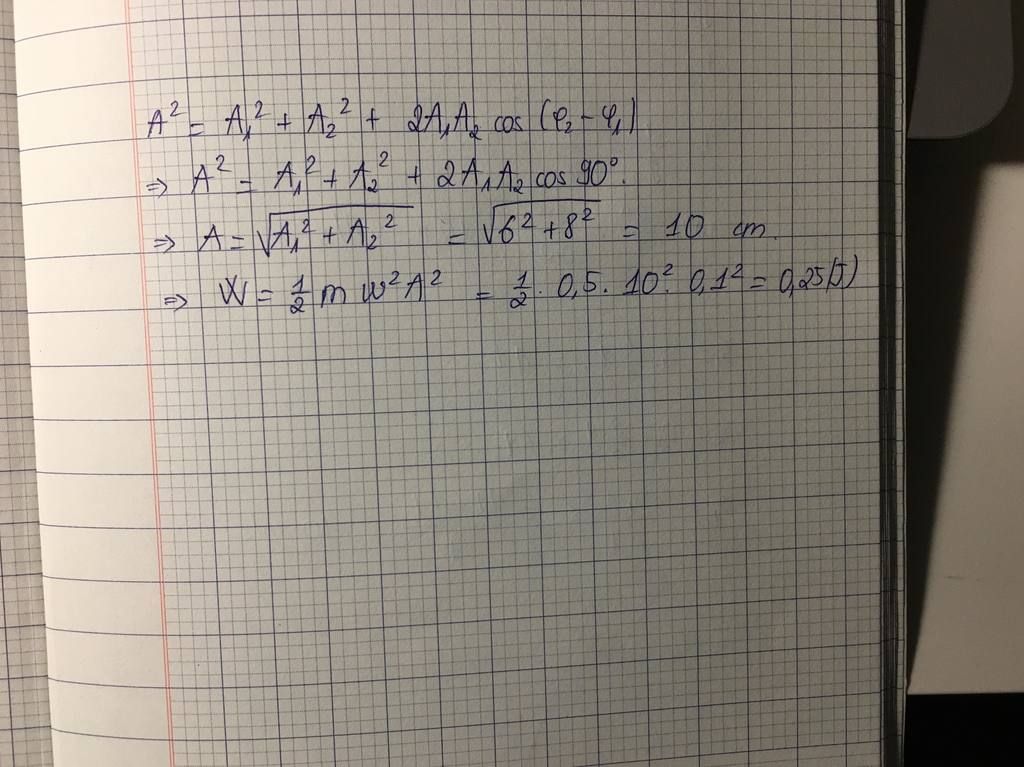 A² = A₁² + A₂² + 2A₁A₂ cos (φ₂ - φ₁)
⇒ A² = A₁² + A₂² + 2A₁A₂ cos 90°.
⇒ A = √(A₁² + A₂²) = √(6² + 8²) = 10 cm.
⇒ W = 1/2 m w² A² = 1/2 . 0,5 . 10² . 0,1² = 0,25(J)